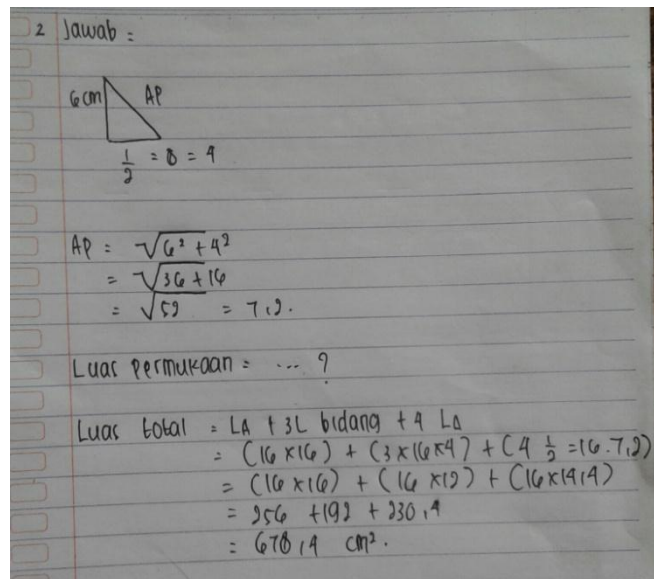 2 Jawab :
6 cm AP
1/2 = 8 = 4
AP = √6² + 4²
= √36 + 16
= √52 = 7,2.
Luas permukaan = ... ?
Luas total = LA + 3L bidang + 4 LΔ
= (16 x 16) + (3 x 16 x 4) + (4 1/2 = 16 . 7,2)
= (16 x 16) + (16 x 12) + (16 x 14,4)
= 256 + 192 + 230,4
= 678,4 cm².